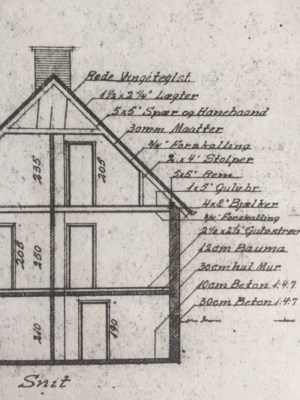 Røde Vingeteglst.
1½ x 2¼" Lægter
5x5" Spær og Hanebaand
30mm Maatter
¾" Forskalling
2x4" Stolper
5x5" Rem
1x5" Gulvbr.
4x8" Bjælker
¾" Forskalling
2½x2½" Gulvstrøer
12cm Bauma
30cm hul Mur
10cm Beton 1:4:7
30cm Beton 1:4:7
235
205
205
250
210
190
Snit